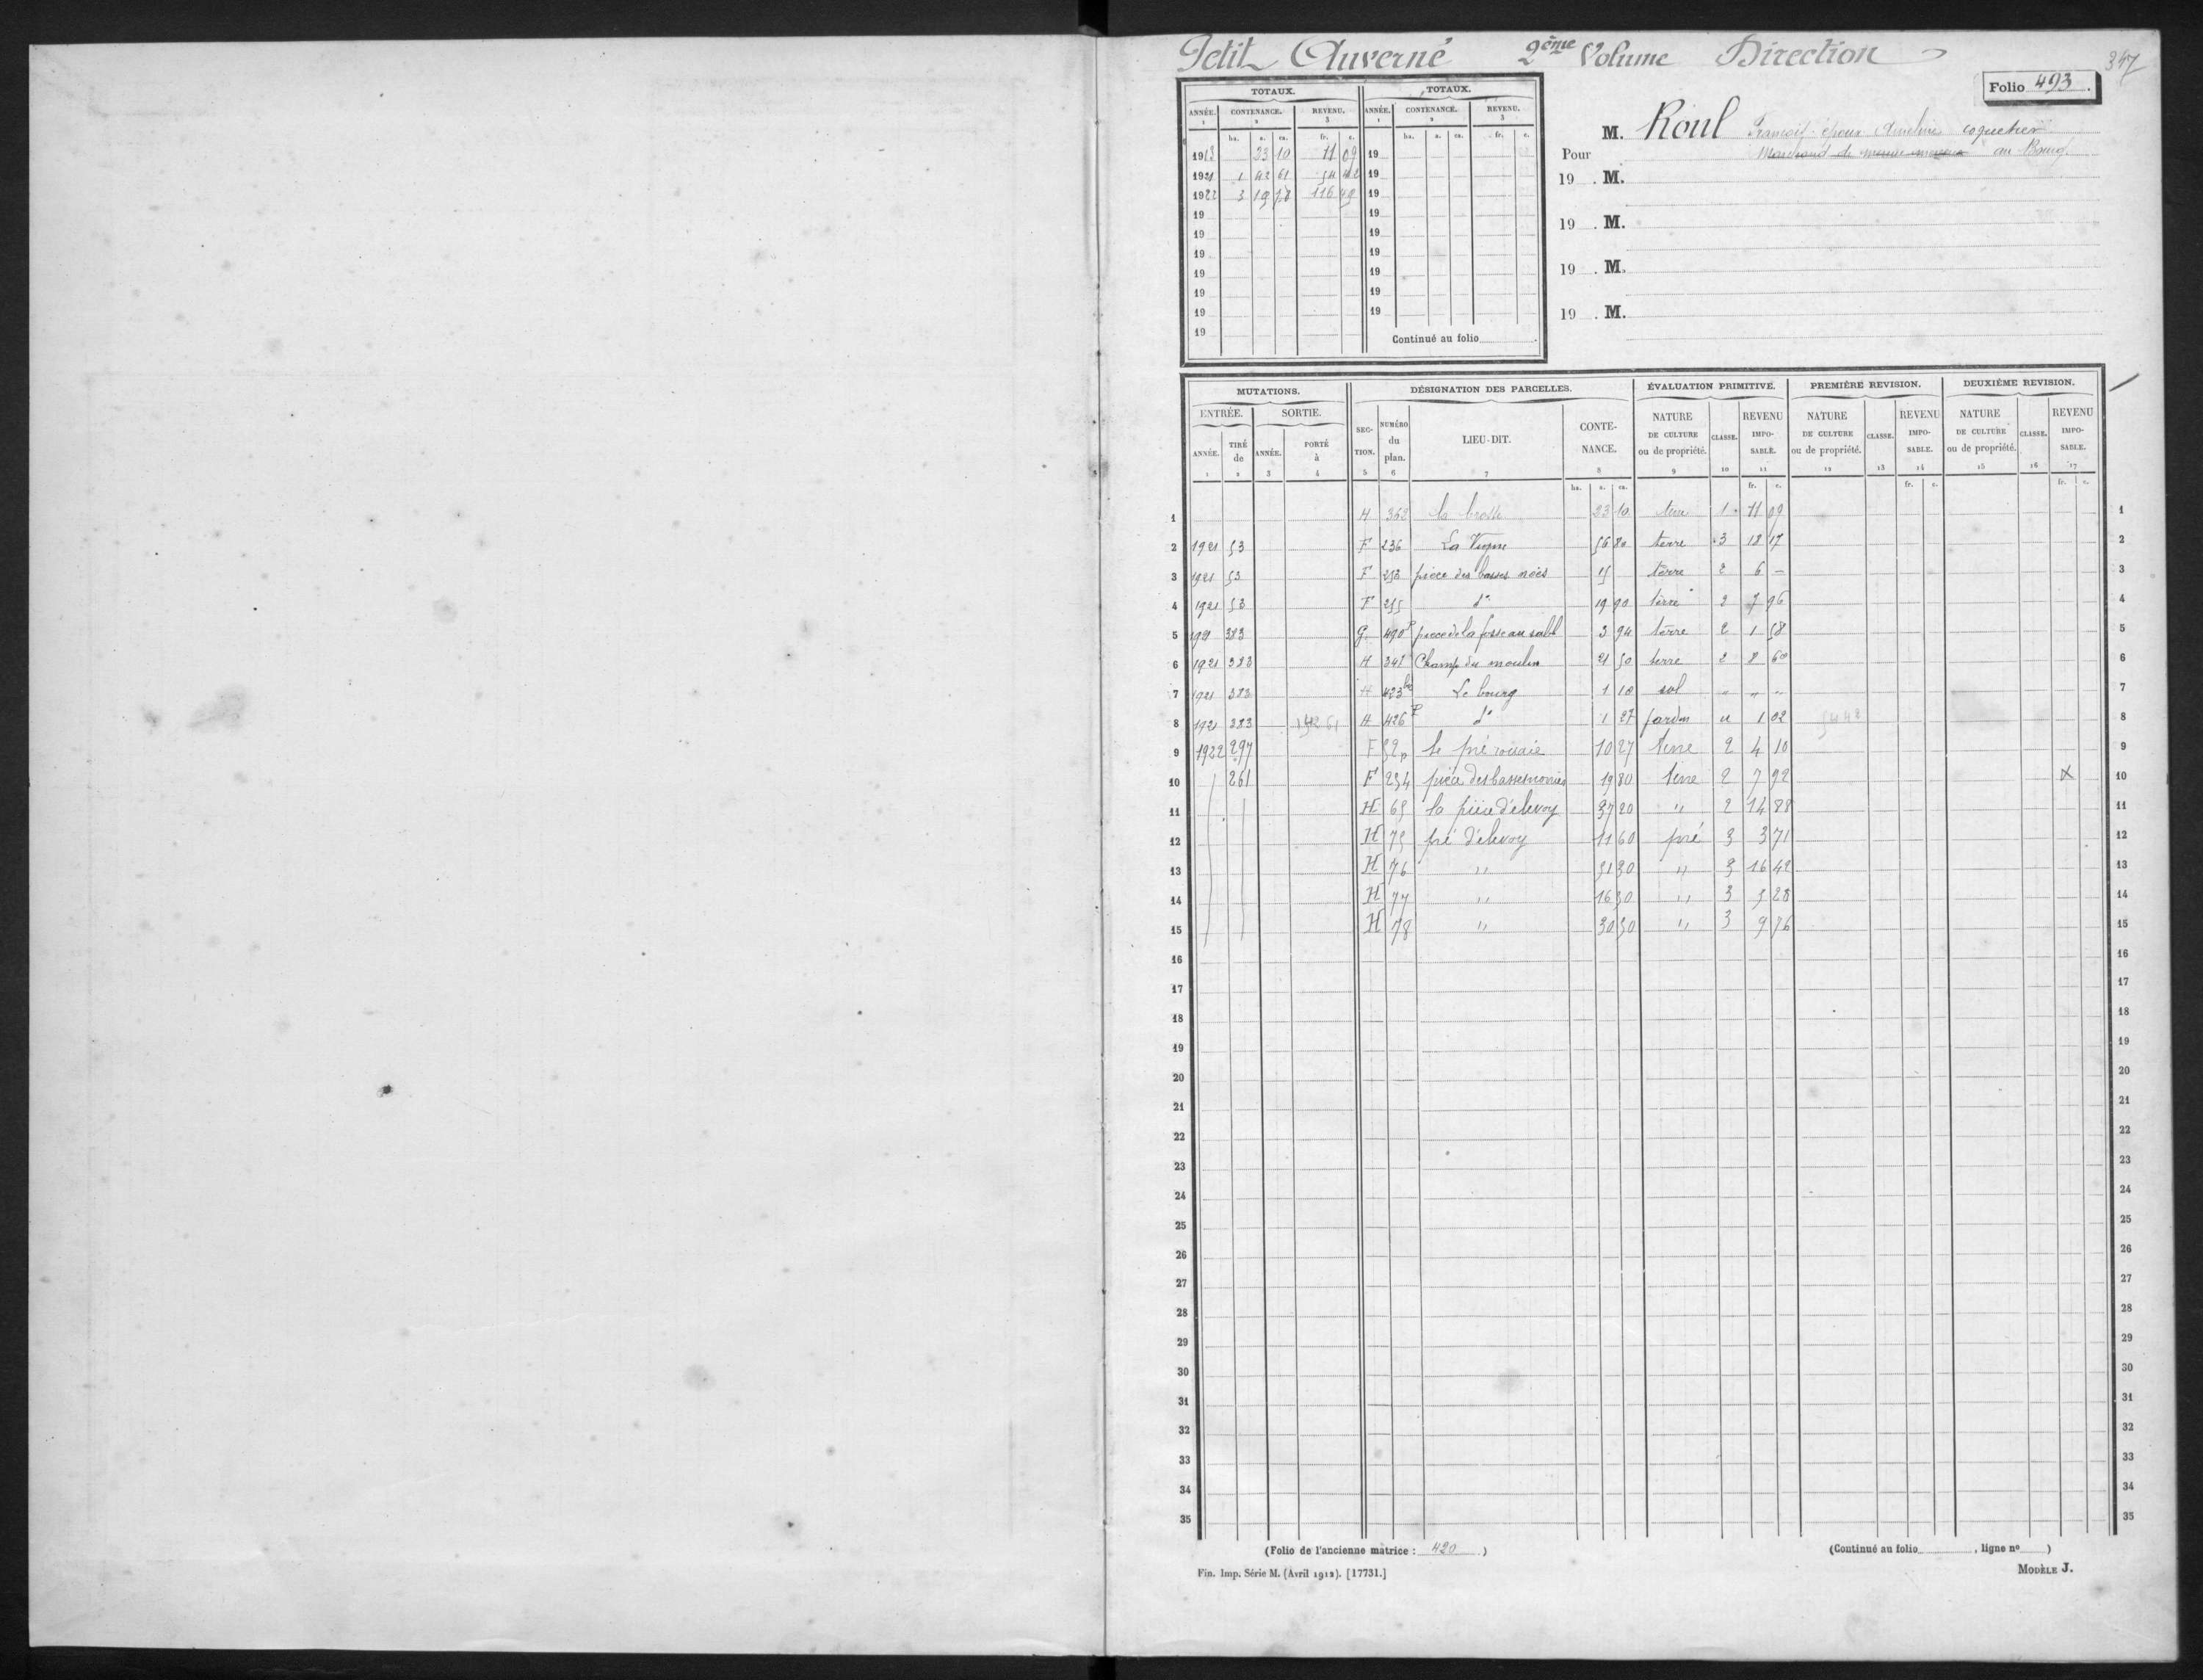 Petit Auverné 2ème Volume Direction
347
Folio 493.
TOTAUX. TOTAUX.
ANNÉE. CONTENANCE. REVENU. ANNÉE. CONTENANCE. REVENU.
1 2 3 1 2 3
ha. a. ca. fr. c. ha. a. ca. fr. c.
1913 23 10 11 09 19
1921 1 42 61 54 42 19
1922 3 19 78 116 49 19
19 19
19 19
19 19
19 19
19 19
19 19
19
Continué au folio
M. Roul François époux Ameline coquetier
Pour Marchand de au Bourg
19 . M.
19 . M.
19 . M.
19 . M.
MUTATIONS. DÉSIGNATION DES PARCELLES. ÉVALUATION PRIMITIVE. PREMIÈRE REVISION. DEUXIÈME REVISION.
ENTRÉE. SORTIE. SECTION. NUMÉRO du plan. LIEU-DIT. CONTENANCE. NATURE DE CULTURE ou de propriété. CLASSE. REVENU IMPOSABLE. NATURE DE CULTURE ou de propriété. CLASSE. REVENU IMPOSABLE. NATURE DE CULTURE ou de propriété. CLASSE. REVENU IMPOSABLE.
ANNÉE. TIRÉ de ANNÉE. PORTÉ à
1 2 3 4 5 6 7 8 9 10 11 12 13 14 15 16 17
ha. a. ca. fr. c. fr. c. fr. c.
1 H 368 la brosse 23 10 terre 1 11 09 1
2 1921 53 F 236 La Vigne 56 80 terre 3 18 17 2
3 1921 53 F 253 pièce des basses noës 15 terre 2 6 – 3
4 1921 53 F 255 d° 19 90 terre 2 7 96 4
5 1921 383 G 490p piece de la fosse au sable 3 94 terre 2 1 58 5
6 1921 383 H 341 Champ du moulin 21 50 terre 2 8 60 6
7 1921 383 H 423 Le bourg 1 10 sol " " " 7
8 1921 383 142 61 H 426P d° 1 27 jardin u 1 02 54 42 8
9 1922 297 F 52p le pré rouaie 10 27 terre 2 4 10 9
10 261 F 254 pièce des basses noues 19 80 terre 2 7 92 X 10
11 H 65 la pièce d'elevoy 37 20 " 2 14 88 11
12 H 75 pré d'elevoy 11 60 pré 3 3 71 12
13 H 76 " 51 30 " 3 16 42 13
14 H 77 " 16 50 " 3 5 28 14
15 H 78 " 30 50 " 3 9 76 15
16 16
17 17
18 18
19 19
20 20
21 21
22 22
23 23
24 24
25 25
26 26
27 27
28 28
29 29
30 30
31 31
32 32
33 33
34 34
35 35
(Folio de l'ancienne matrice : 420 ) (Continué au folio , ligne n° )
Fin. Imp. Série M. (Avril 1912). [17731.] MODÈLE J.